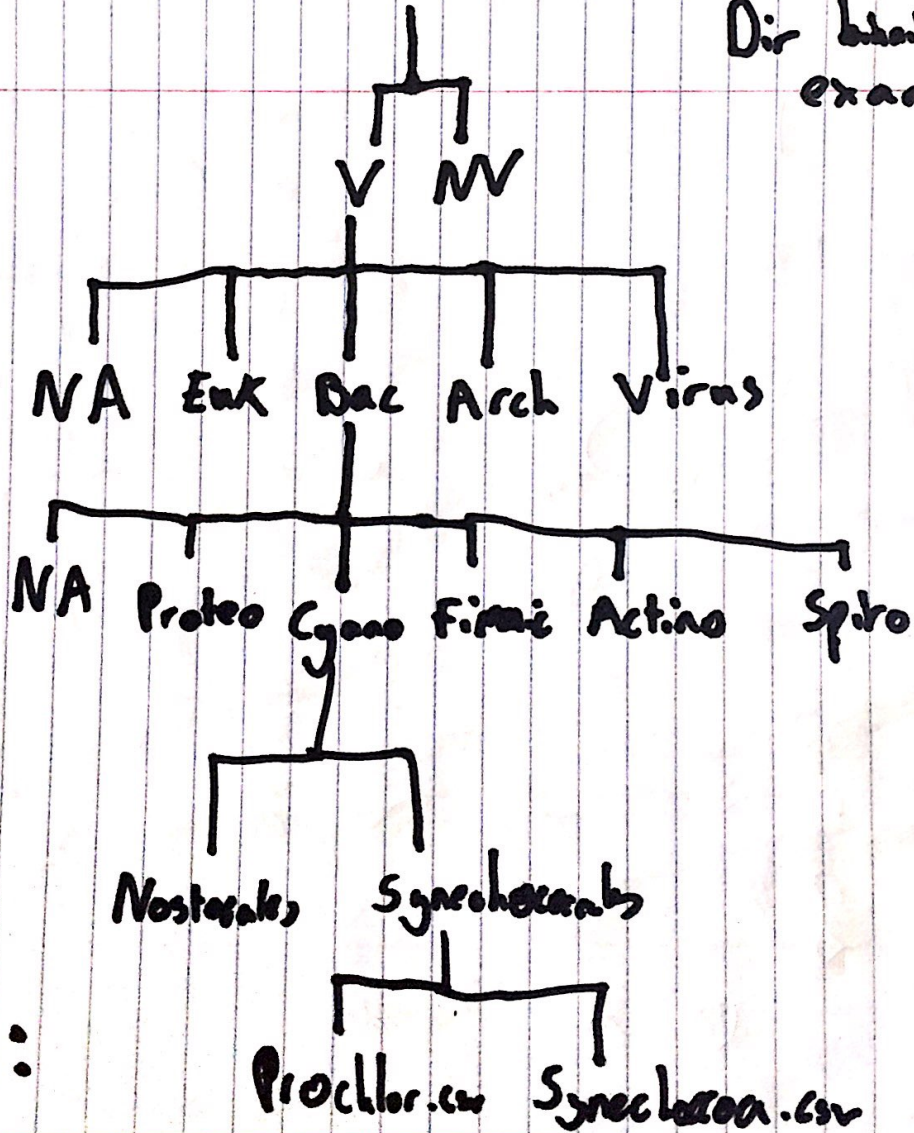 Dir
exa
V NV
NA Euk Bac Arch Virus
NA Proteo Cyano Firmic Actino Spiro
Nostocales Synechococcales
Prochlor.csv Synechococca.csv